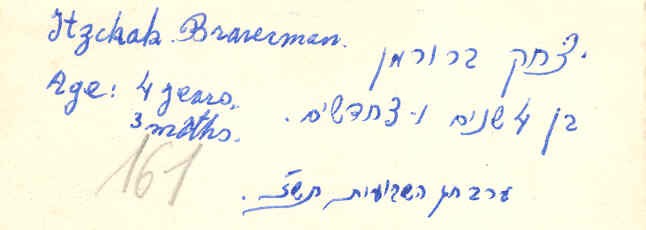 Itzchak Braverman.
יצחק ברורמן
Age: 4 years,
3 moths.
בן 4 שנים ו-3 חדשים.
161
ערב חג השבועות תש"ז.